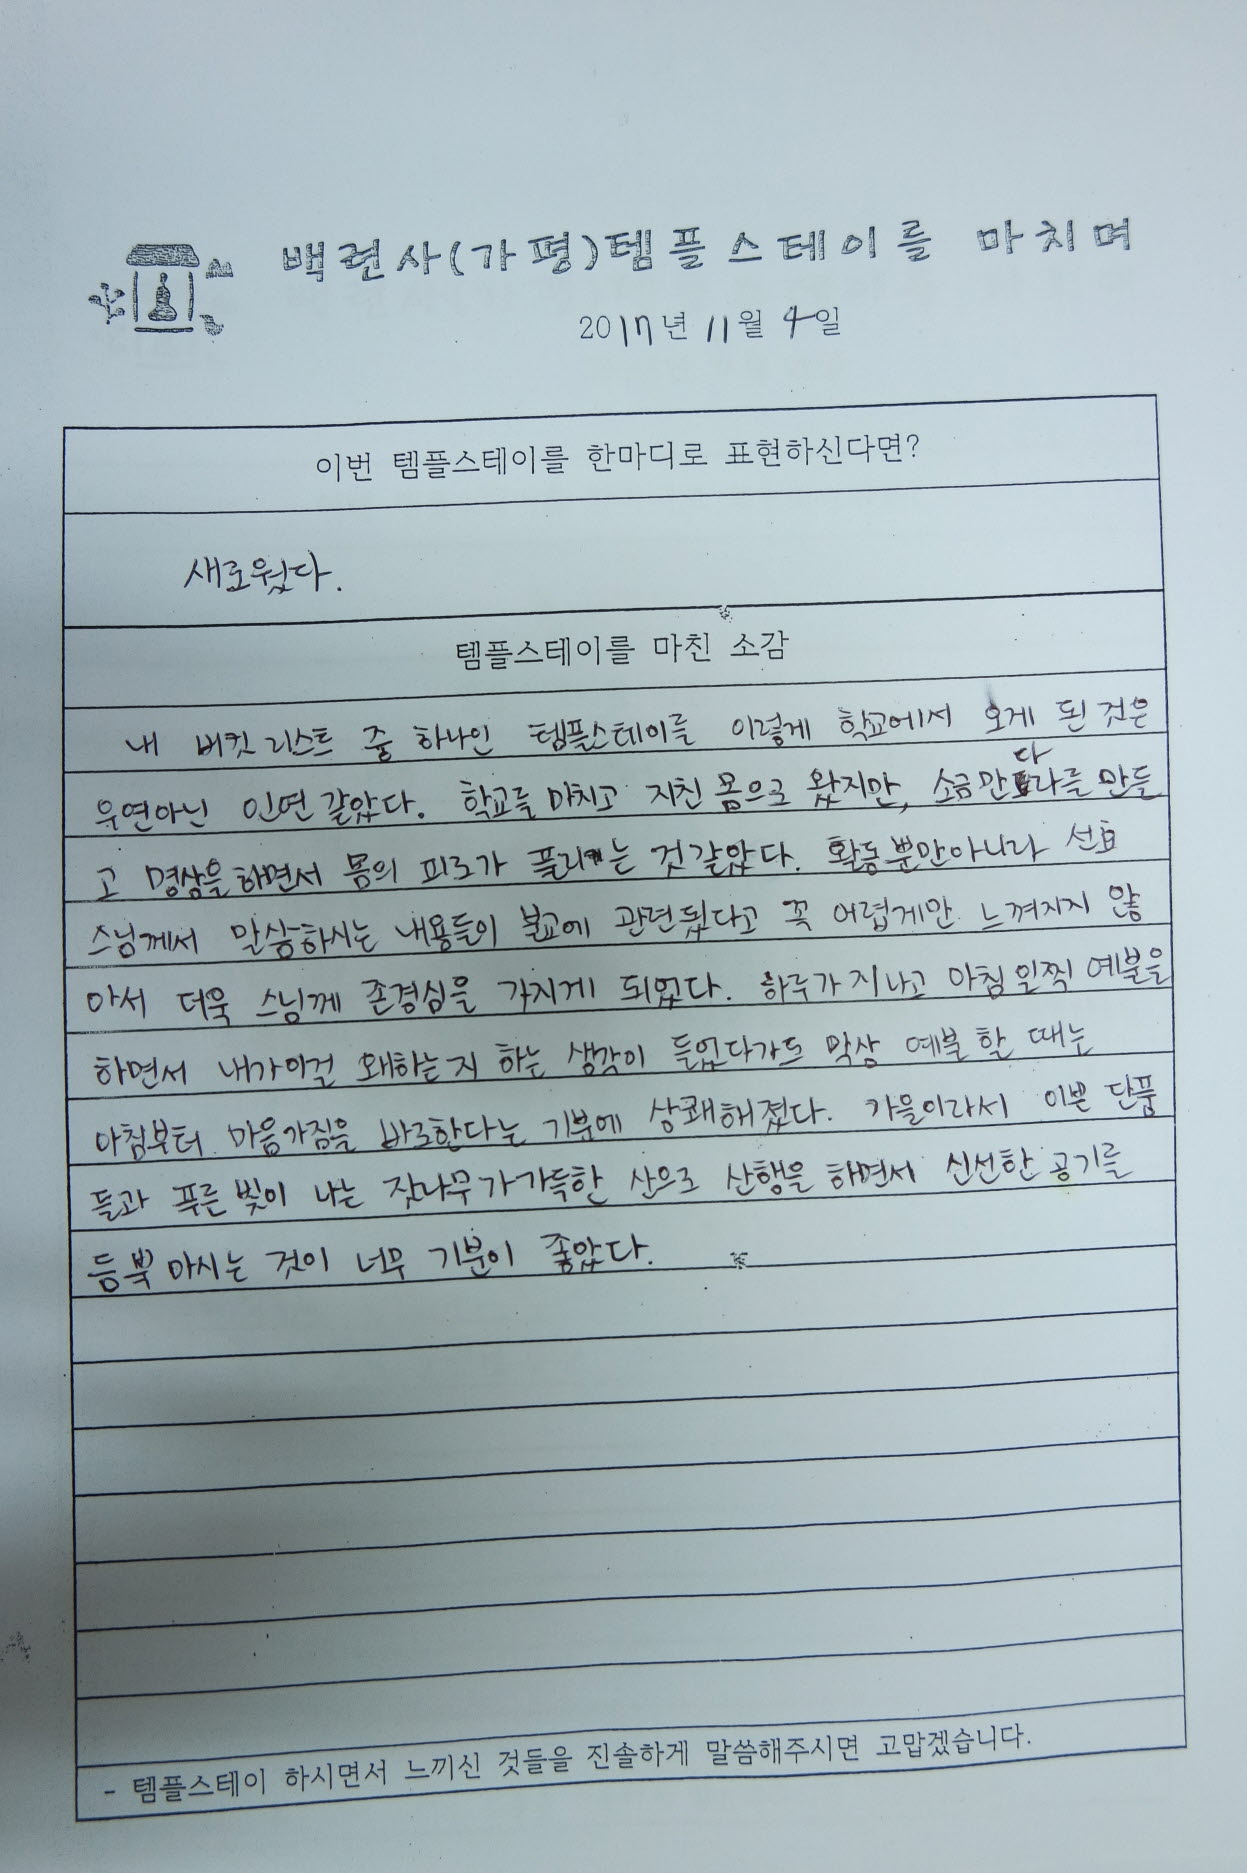 백련사(가평)템플스테이를 마치며
2017년 11월 4일
이번 템플스테이를 한마디로 표현하신다면?
새로웠다.
템플스테이를 마친 소감
내 버킷리스트 중 하나인 템플스테이를 이렇게 학교에서 오게 된 것은
우연아닌 인연 같았다. 학교를 마치고 지친 몸으로 왔지만, 소금만다라를 만들
고 명상을하면서 몸의 피로가 풀리는 것같았다. 활동뿐만아니라 선효
스님께서 말씀하시는 내용들이 불교에 관련됬다고 꼭 어렵게만 느껴지지 않
아서 더욱 스님께 존경심을 가지게 되었다. 하루가 지나고 아침 일찍 예불을
하면서 내가이걸 왜하는지 하는 생각이 들었다가도 막상 예불 할 때는
아침부터 마음가짐을 바로한다는 기분에 상쾌해졌다. 가을이라서 이쁜 단풍
들과 푸른 빛이 나는 잣나무가가득한 산으로 산행을 하면서 신선한 공기를
듬뿍 마시는 것이 너무 기분이 좋았다.
- 템플스테이 하시면서 느끼신 것들을 진솔하게 말씀해주시면 고맙겠습니다.